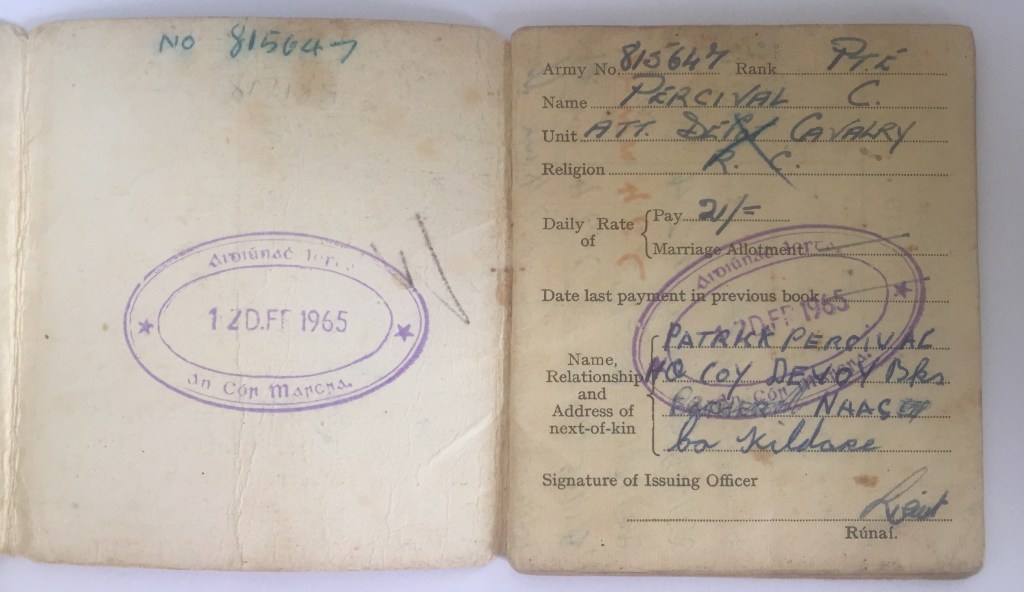 No 815647
Aidiúnaċ
12 D.F. 1965
An Cór Marcra.
Army No. 815647 Rank PTE
Name PERCIVAL C.
Unit ATT. CAVALRY
Religion R. C.
Daily Rate of
Pay 21/=
Marriage Allotment
Date last payment in previous book
Aidiúnaċ
D.F. 1965
An Cór
Name, Relationship and Address of next-of-kin
PATRICK PERCIVAL
HQ COY DEVOY BRS
NAAS
Co Kildare
Signature of Issuing Officer
Lieut
Rúnaí.